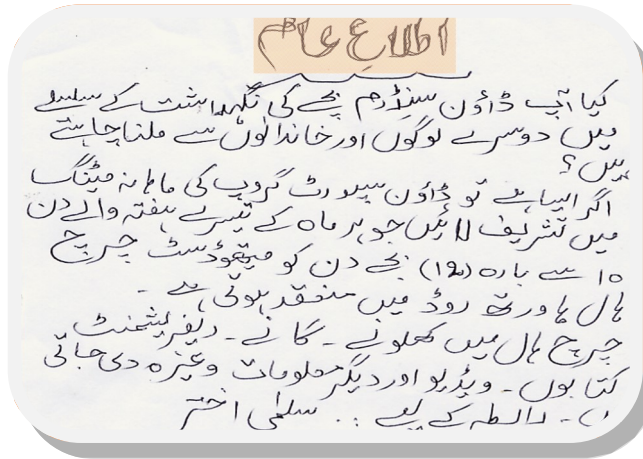 اطلاع عام
کیا آپ ڈاؤن سینڈرم بچے کی نگہداشت کے سلسلے
میں دوسرے لوگوں اور خاندانوں سے ملنا چاہتے
ہیں؟
اگر ایسا ہے تو ڈاؤن سپورٹ گروپ کی ماہانہ میٹنگ
میں تشریف لائیں جو ہر ماہ کے تیسرے ہفتہ والے دن
۱۰ سے بارہ (۱۲) بجے دن کو میتھوڈسٹ چرچ
ہال ہاورتھ روڈ میں منعقد ہوتی ہے۔
چرچ ہال میں کھلونے۔ گانے۔ ریفریشمنٹ
کتابوں۔ ویڈیو اور دیگر معلومات وغیرہ دی جاتی
۔ رابطہ کے لیے :۔ سلمی اختر